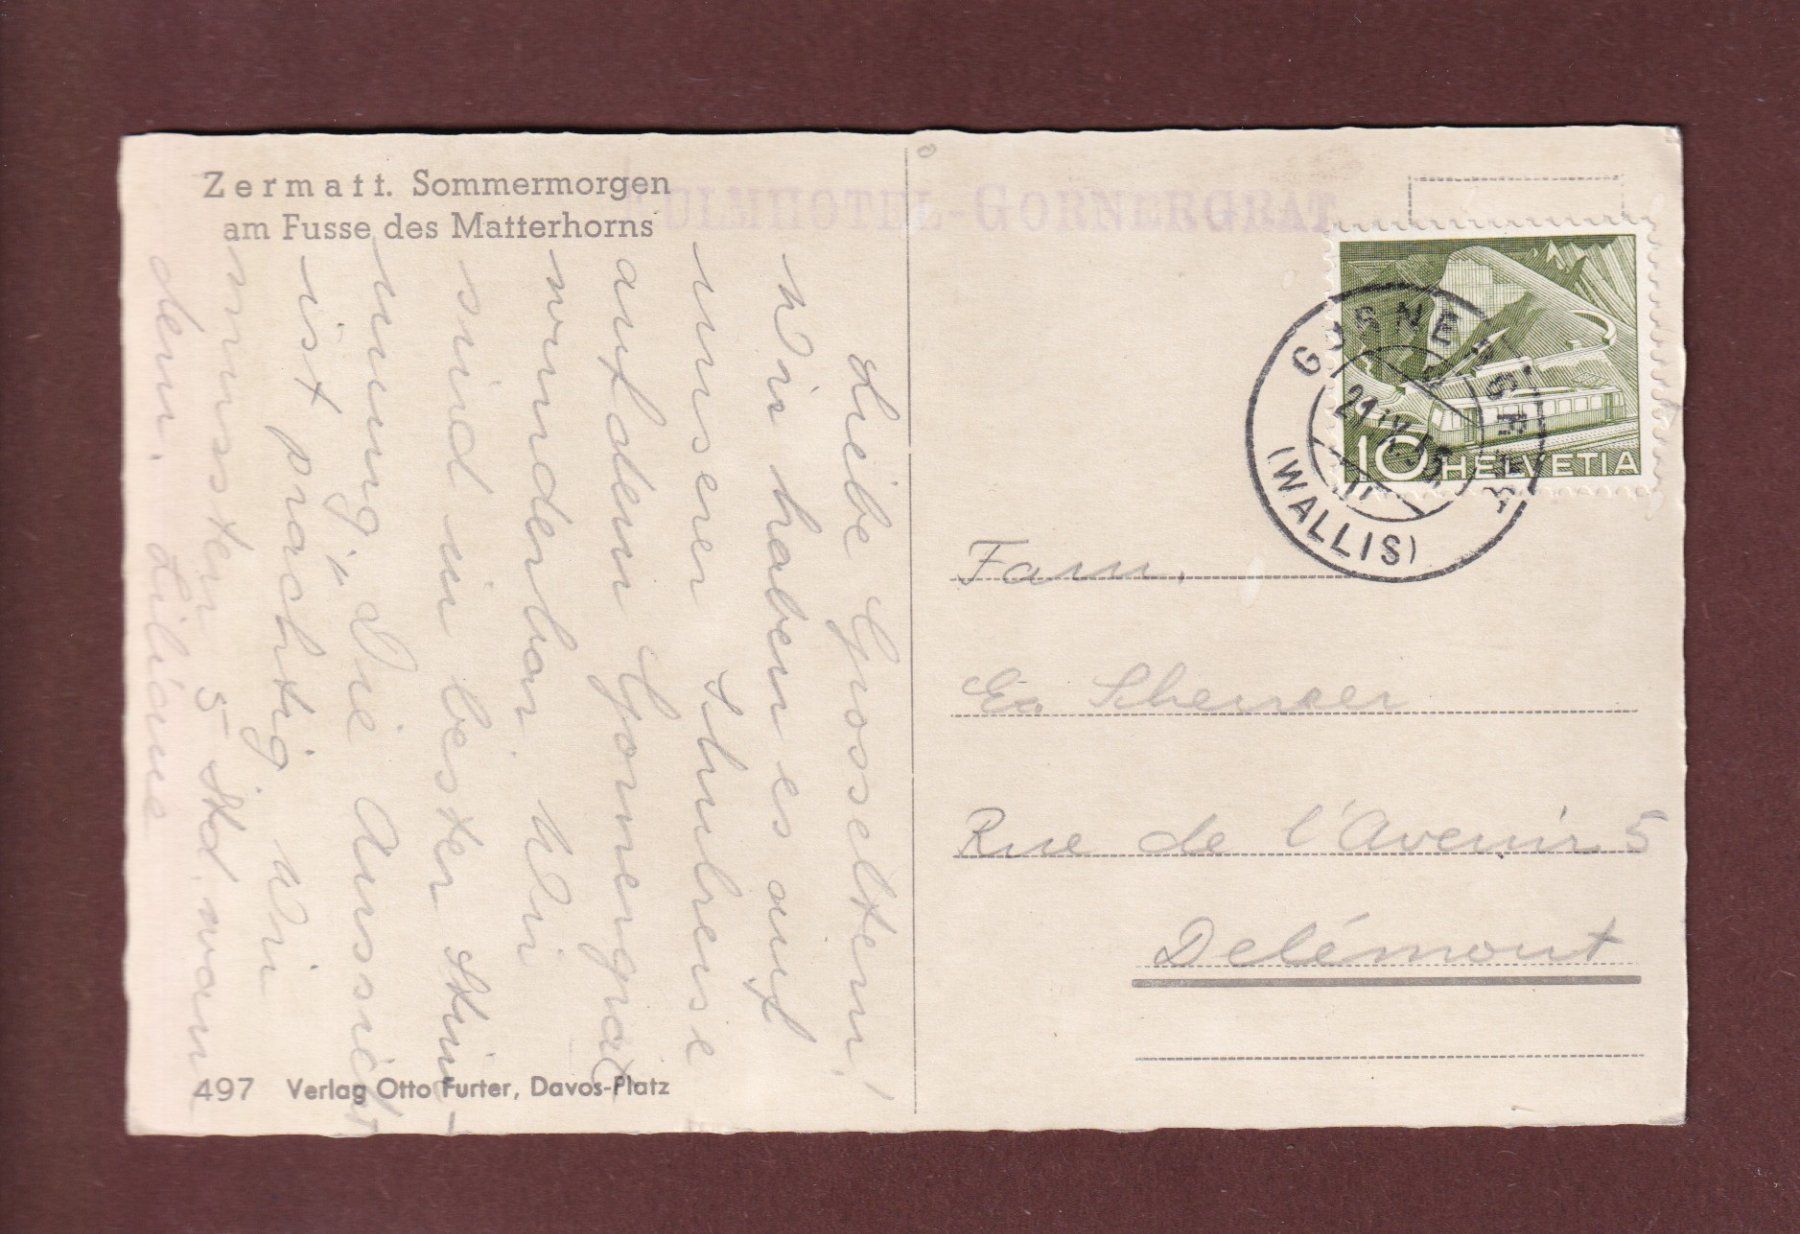 Zermatt. Sommermorgen
am Fusse des Matterhorns
KULMHOTEL-GORNERGRAT
Liebe Grosseltern!
Wir haben es auf
unserer Schulreise
auf dem Gornergrat
wunderbar. Wir
sind in bester Stim-
mung. Die Aussicht
ist prächtig. Wir
mussten 5 Std. wan
dern. Liliane
497 Verlag Otto Furter, Davos-Platz
10 HELVETIA
GORNERGRAT
(WALLIS)
Fam.
Rue de l'Avenir 5
Delémont